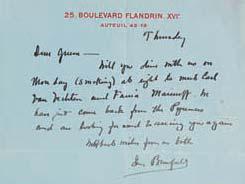 25. BOULEVARD FLANDRIN. XVIe
AUTEUIL 42-19
Thursday
Dear Green —
Will you dine with us on
Monday (smoking) at eight to meet Carl
Van Vechten and Fania Marinoff We
have just come back from the Pyrenees
and are looking forward to seeing you again
wishes from us both